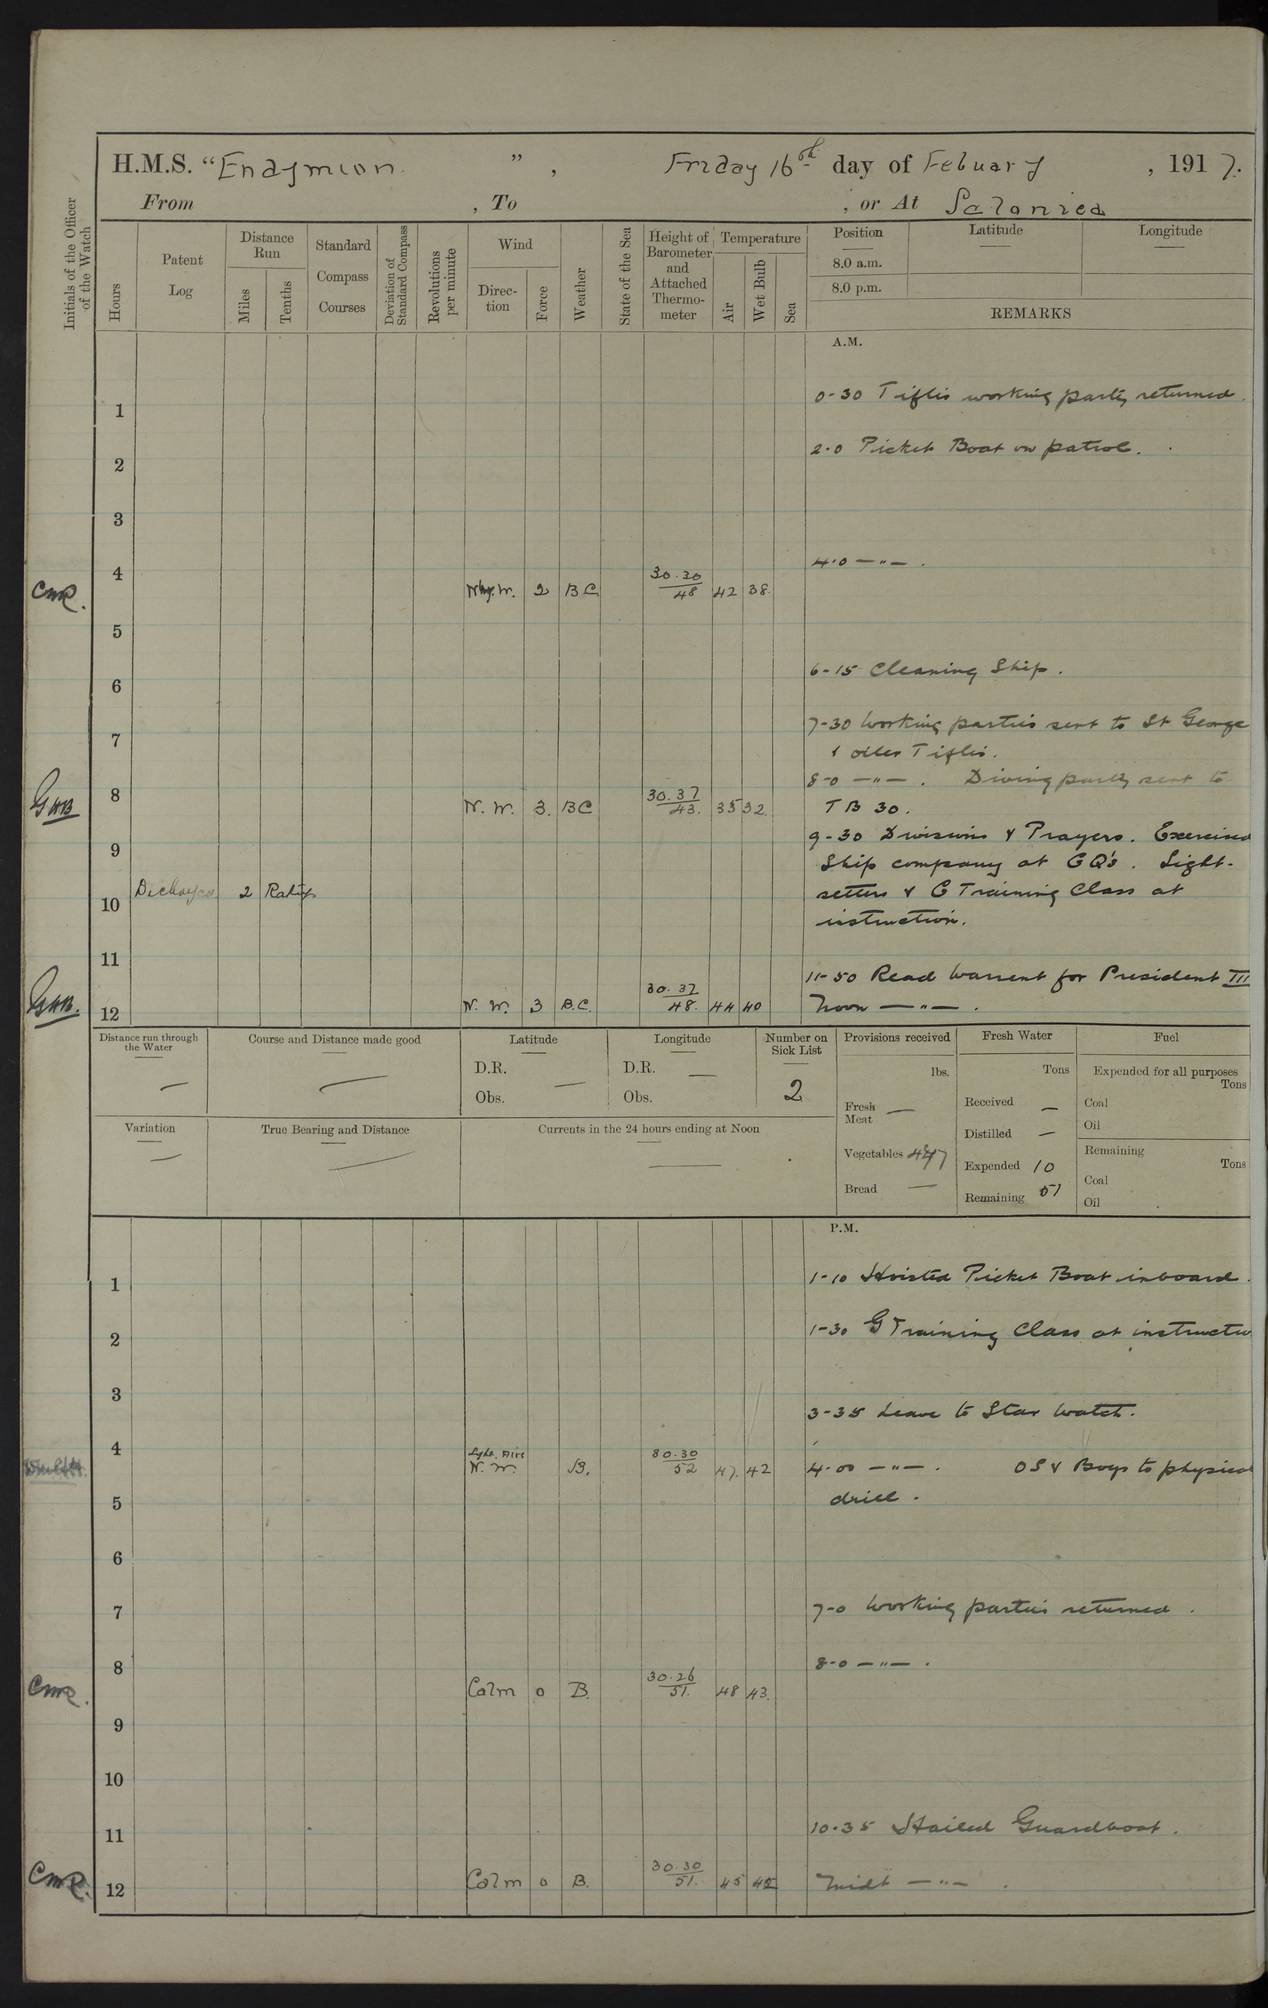 H.M.S. "Endymion", Friday 16th day of Febuary, 1917.
From , To , or At Salonica
Initials of the Officer of the Watch
Hours
Patent Log
Distance Run
Miles
Tenths
Standard Compass Courses
Deviation of Standard Compass
Revolutions per minute
Wind
Direction
Force
Weather
State of the Sea
Height of Barometer and Attached Thermometer
Temperature
Air
Wet Bulb
Sea
Position
8.0 a.m.
8.0 p.m.
Latitude
Longitude
REMARKS
A.M.
1 0-30 Tiflis working party returned.
2 2-0 Picket Boat on patrol.
3
4 4-0 —"— .
CMR. W. 2 BC 30.30/48 42 38.
5
6 6-15 Cleaning Ship.
7 7-30 Working parties sent to St George
& oiler Tiflis.
8-0 —"— . Diving party sent to
GHB 8 N.W. 3. BC 30.37/43. 35 32 TB 30.
9 9-30 Divisions & Prayers. Exercised
Ship company at GQ's. Sight-
10 2 Ratings setters & G Training Class at
instruction.
11 11-50 Read Warrent for President III
GHB. 12 N.W. 3 B.C. 30.37/48. 44 40 Noon —"— .
Distance run through the Water
—
Course and Distance made good
—
Latitude
D.R.
Obs. —
Longitude
D.R. —
Obs.
Number on Sick List
2
Provisions received
lbs.
Fresh Meat —
Vegetables
Bread —
Fresh Water
Tons
Received —
Distilled —
Expended 10
Remaining 51
Fuel
Expended for all purposes
Tons
Coal
Oil
Remaining
Tons
Coal
Oil
Variation
—
True Bearing and Distance
—
Currents in the 24 hours ending at Noon
—
P.M.
1 1-10 Hoisted Picket Boat inboard.
2 1-30 G Training Class at instructio
3 3-35 Leave to Star Watch.
4 Lght. Airs N.W. B. 30.30/52 47. 42 4-00 —"— . OS & Boys to physical
5 drill.
6
7 7-0 Working parties returned.
8 8-0 —"— .
CMR. Calm 0 B. 30.26/51. 48 43.
9
10
11 10-35 Hailed Guardboat.
CMR. 12 Calm 0 B. 30.30/51. 45 42 Midt —"— .